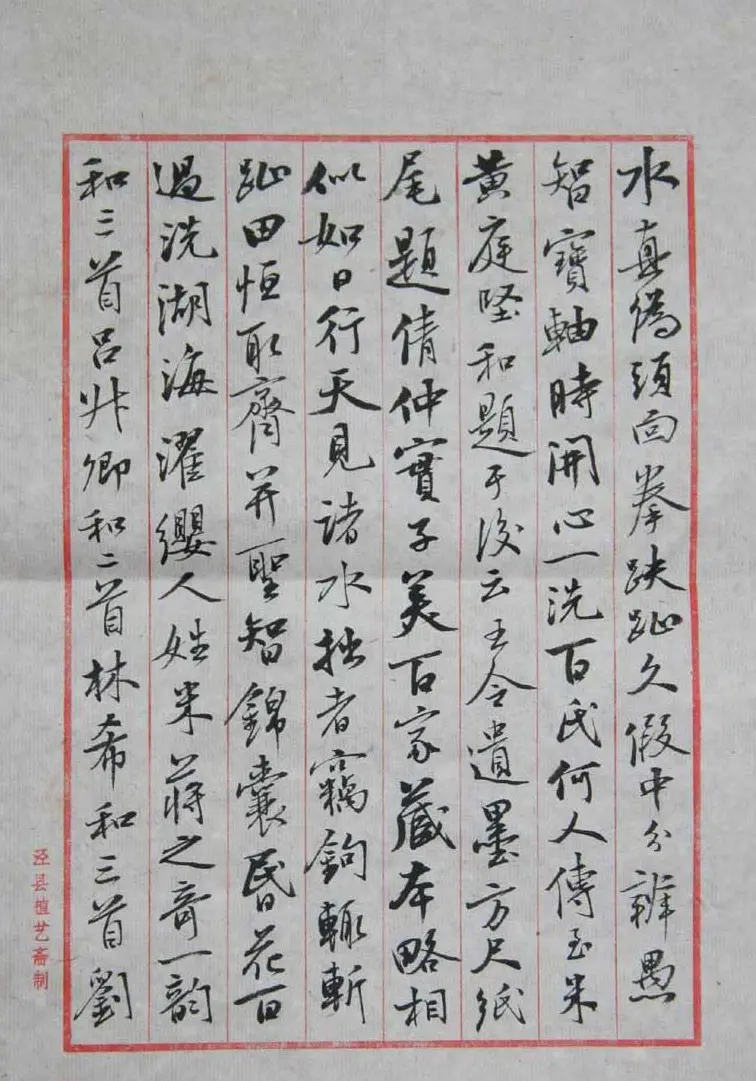 水真偽頭面拳趺趾久假中分辨愚
智寶軸時開心一洗百氏何人傳至米
黃庭堅和題于後云王令遺墨方尺紙
尾題倩仲實子美百家藏本略相
似如日行天見諸水拙者竊鉤輒斬
趾田恒取齊并聖智錦囊昏花百
過洗湖海濯纓人姓米蔣之奇一韵
和三首呂升卿和二首林希和三首劉
泾县植艺斋制